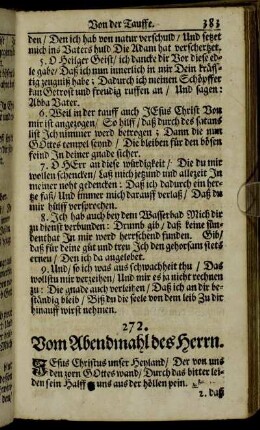 Von der Tauffe. 383
den / Den ich hab von natur verschuld / Und setzet
mich ins Vaters huld Die Adam hat verschertzet.
5. O Heiliger Geist / ich dancke dir Vor diese ed-
le gabe / Daß ich nun innerlich in mir Dein kräff-
tig zeugniß habe; Dadurch ich meinen Schöpffer
kan Getrost und freudig ruffen an / Und sagen:
Abba Vater.
6. Weil in der tauff auch JEsus Christ Von
mir ist angezogen / So hilff / daß durch des satans
list Ich nimmer werd betrogen; Dann die nun
GOttes tempel seynd / Die bleiben für den bösen
feind In deiner gnade sicher.
7. O HErr an diese würdigkeit / Die du mir
wollen schencken / Laß mich jetzund und allezeit In
meiner noht gedencken: Daß ich dadurch ein her-
tze faß / Und immer mich darauff verlaß / Daß du
mir hülff versprochen.
8. Ich hab auch bey dem Wasserbad Mich dir
zu dienst verbunden: Drumb gib / daß keine sün-
denthat In mir werd herrschend funden. Gib /
daß für deine güt und treu Ich den gehorsam stets
erneu / Den ich da angelobet.
9. Und / so ich was aus schwachheit thu / Das
wollstu mir verzeihen / Und mir es ja nicht rechnen
zu: Die gnade auch verleihen / Daß ich an dir be-
ständig bleib / Biß du die seele von dem leib Zu dir
hinauff wirst nehmen.
272.
Vom Abendmahl des Herrn.
JEsus Christus unser Heyland / Der von uns
den zorn GOttes wand / Durch das bitter lei-
den sein Halff uns aus der höllen pein.
2. daß